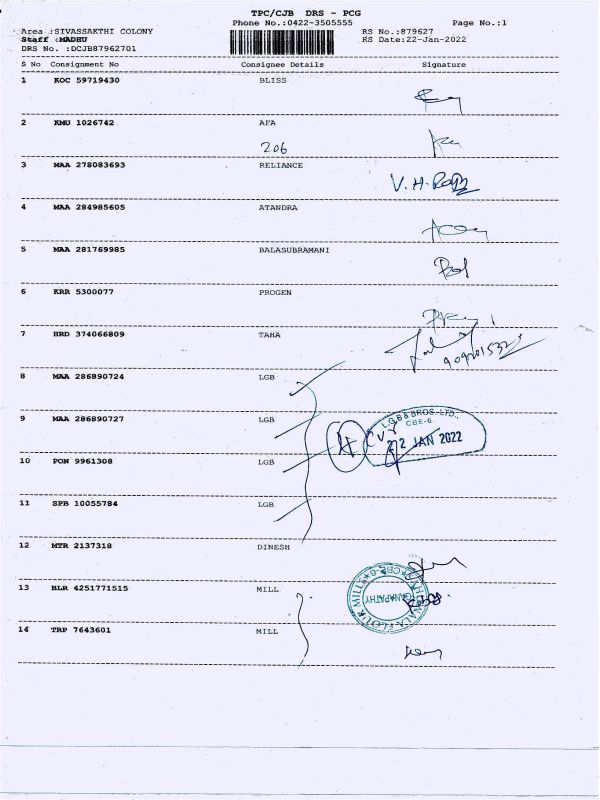 TPC/CJB DRS - PCG
Phone No.:0422-3505555 Page No.:1
Area :SIVASSAKTHI COLONY RS No.:879627
Staff :MADHU RS Date:22-Jan-2022
DRS No. :DCJB87962701
S No Consignment No Consignee Details Signature
1 KOC 59719430 BLISS
2 KMU 1026742 AFA
206
3 MAA 278083693 RELIANCE
V.H.
4 MAA 284985605 ATANDRA
5 MAA 281769985 BALASUBRAMANI
6 KRR 5300077 PROGEN
7 HRD 374066809 TAHA
8 MAA 286890724 LGB
9 MAA 286890727 LGB
L.G.B & BROS. LTD.,
CBE-6.
22 JAN 2022
10 PON 9961308 LGB
11 SPB 10055784 LGB
12 MTR 2137318 DINESH
13 BLR 4251771515 MILL
FLOUR MILL
GANAPATHY
14 TRP 7643601 MILL